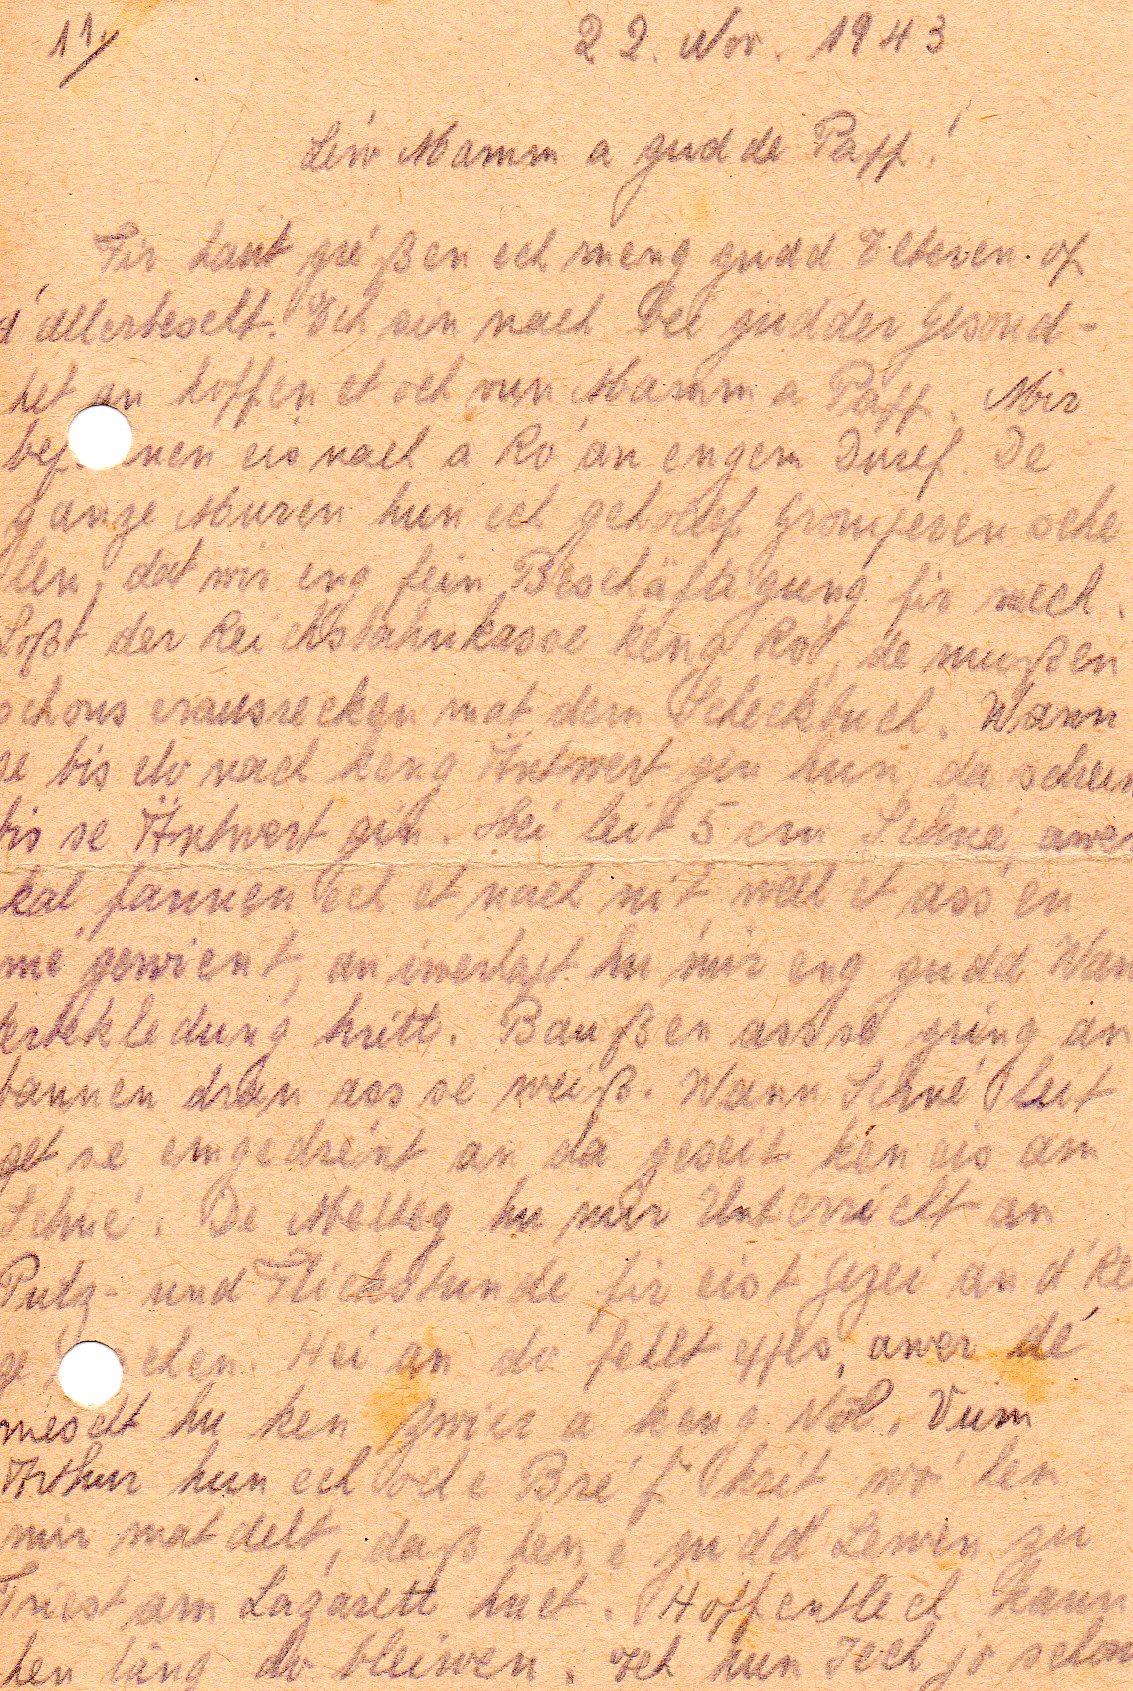 11.) 22. Nov. 1943
Léiw Mamm a gudde Papp!
Fir haut gréßen ech meng gudd Elteren. of
d'allerbescht. Ech sin nach bei gudder Gesond-
het an hoffen et och vun Mamm a Papp. Mir
bef nnen eis nach a Ro' an engem Duref. De
ganze Muren hun ech gehollef Gromperen sche
len, dat wir eng fein Beschäftigung fir mech.
Loßt der Reichsbahnkasse keng Rot, de mußen
schons erausrecken mat dem Scheckbuch. Wann
se bis elo nach keng Äntwert gin hun, da schreiw
bis se Äntwert gin. Hei leit 5 cm Schné awer
kal fannen ech et nach nit well et ass en
mé gewient, an iwerhapt hu mir eng gudd Wan
terbekledung kritt. Baußen ass se gréng an
bannen dran ass se weiß. Wann Schné leit
get se emgedréint an da geseit ken eis am
Schné. De Metteg hu mir Unterricht an
Putz- und Flickstunde fir eist Gezei an d'Re
gé chen. Hei an do fehlt eppes, awer dé
mescht hu ken Zwier a keng Nol. Vum
Arthur hun ech och e Bréf krit wo' hen
mir matdelt, daß hen e gudd Lewen zu
Triest am Lazarett huet. Hoffentlech kann
hen lang do bleiwen. Ech hun Iech jo schon